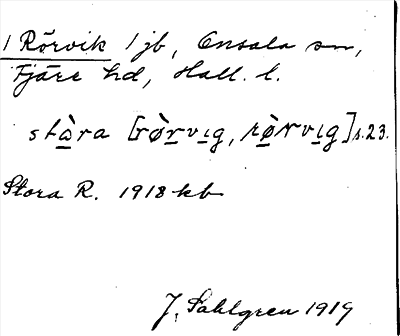 1 Rörvik 1 jb, Onsala sn,
Fjäre hd, Hall. l.
stàra [rö̀rvıg, rö̀rvıg] s. 23.
Stora R. 1918 kb
J. Sahlgren 1919